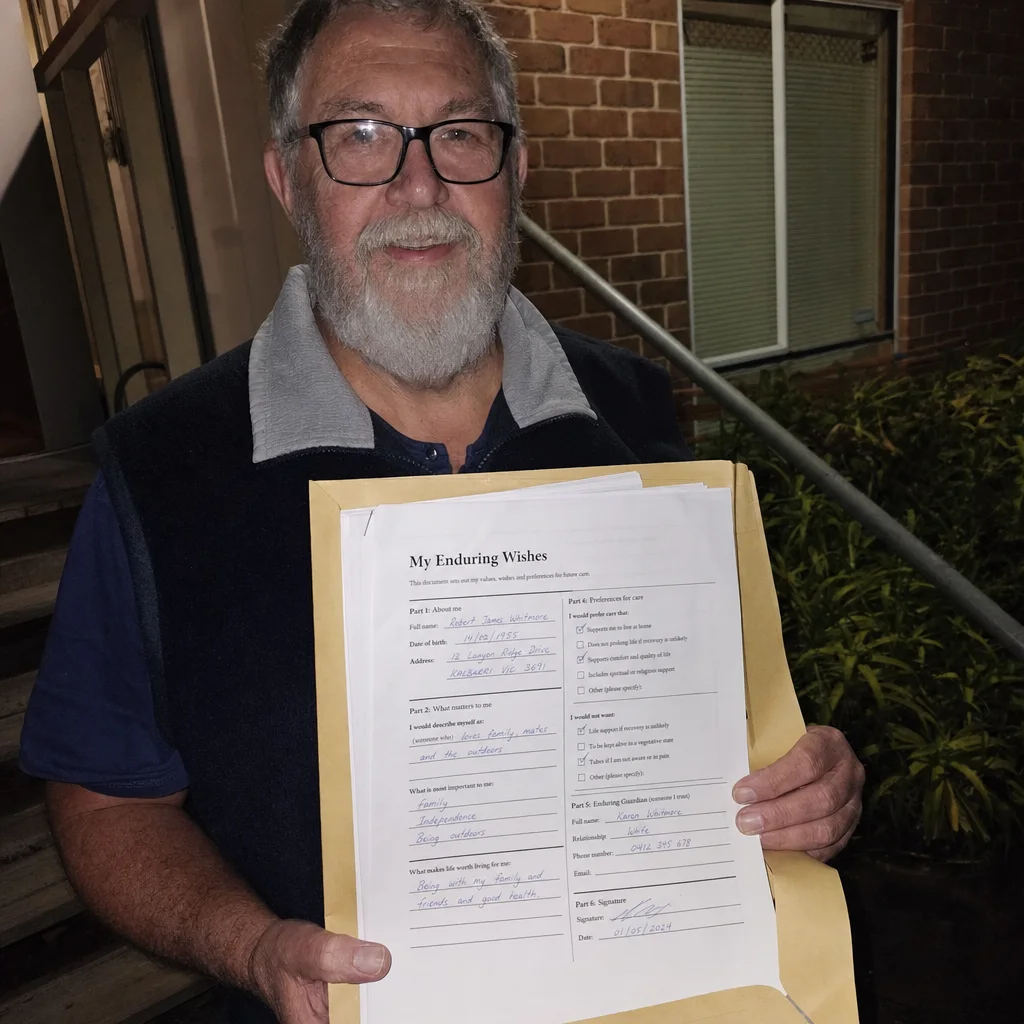 My Enduring Wishes
This document sets out my values, wishes and preferences for future care.
Part 1: About me
Full name: Robert James Whitmore
Date of birth: 14/02/1955
Address: 12 Lanyon Ridge Drive
KALBARRI VIC 3691
Part 2: What matters to me
I would describe myself as:
(someone who) loves family, mates
and the outdoors
What is most important to me:
Family
Independence
Being outdoors
What makes life worth living for me:
Being with my family and
friends and good health.
Part 4: Preferences for care
I would prefer care that:
Supports me to live at home
Does not prolong life if recovery is unlikely
Supports comfort and quality of life
Includes spiritual or religious support
Other (please specify):
I would not want:
Life support if recovery is unlikely
To be kept alive in a vegetative state
Tubes if I am not aware or in pain
Other (please specify):
Part 5: Enduring Guardian (someone I trust)
Full name: Karen Whitmore
Relationship: White
Phone number: 0412 345 678
Email:
Part 6. Signature
Signature:
Date: 01/05/2024